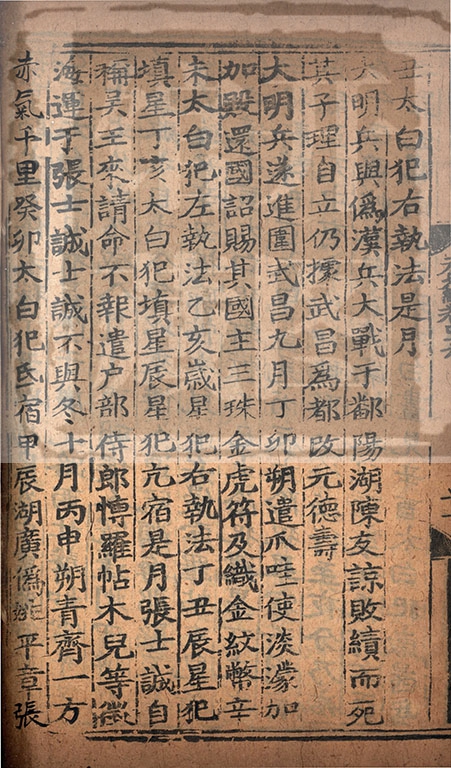 丑太白犯右執法是月
大明兵與僞漢兵大戰于鄱陽湖陳友諒敗績而死
其子理自立仍據武昌爲都改元德壽
大明兵遂進圍武昌九月丁卯朔遣爪哇使淡濛加
加殿還國詔賜其國主三珠金虎符及織金紋幣辛
未太白犯左執法乙亥歲星犯右執法丁丑辰星犯
填星丁亥太白犯填星辰星犯亢宿是月張士誠自
稱吳王來請命不報遣户部侍郎愽羅帖木兒等徵
海運于張士誠士誠不與冬十月丙申朔青齊一方
赤氣千里癸卯太白犯氐宿甲辰湖廣僞姚平章張